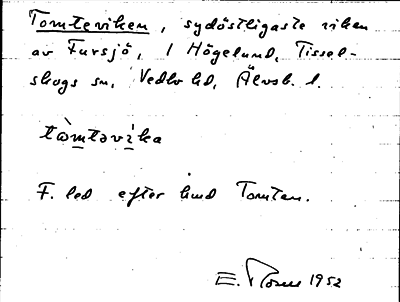 Tomteviken, sydöstligaste viken
av Fursjö, i Högelund, Tissel-
skogs sn, Vedbo hd, Älvsb. l.
tòmtəvika
F. led efter hmd Tomten.
E. 1952